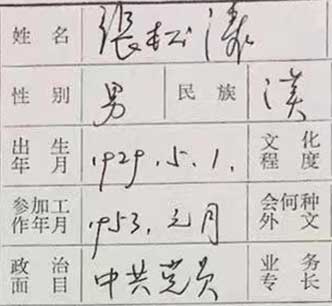 姓名 張松濤
性别 男 民族 漢
出生年月 1929.5.1. 文化程度
参加工作年月 1953.元月 会何种外文
政治面目 中共党员 业务专长